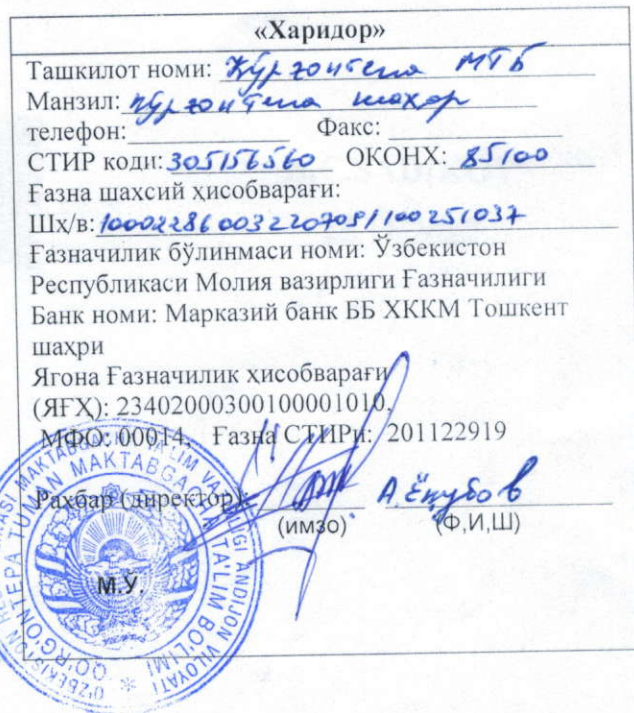 «Харидор»
Ташкилот номи: Қўрғонтепа МТБ
Манзил: Қўрғонтепа шаҳар
телефон: Факс:
СТИР коди: 305156560 ОКОНХ: 85100
Ғазна шахсий ҳисобварағи:
Шх/в: 100022860032207091100251037
Ғазначилик бўлинмаси номи: Ўзбекистон
Республикаси Молия вазирлиги Ғазначилиги
Банк номи: Марказий банк ББ ХККМ Тошкент
шаҳри
Ягона Ғазначилик ҳисобварағи
(ЯҒХ): 23402000300100001010,
МФО: 00014, Ғазна СТИРи: 201122919
Раҳбар (директор):
А.Ёқубов
(имзо) (Ф,И,Ш)
М.Ў.
QO'RG'ONTEPA TUMAN MAKTABGACHA TA'LIM BO'LIMI
ANDIJON VILOYATI